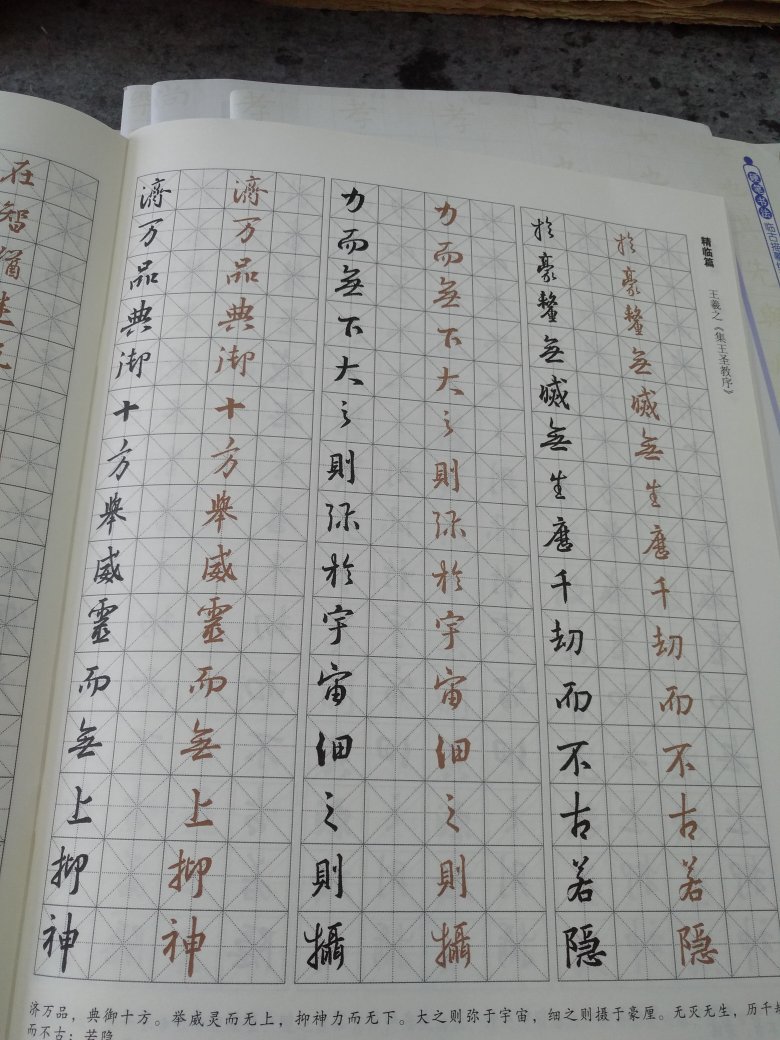 精临篇
王羲之《集王圣教序》
在智猶迷
濟万品典御十方舉威靈而無上抑神
濟万品典御十方舉威靈而無上抑神
力而無下大之則弥於宇宙細之則攝
力而無下大之則弥於宇宙細之則攝
於豪釐無滅無生歷千劫而不古若隱
於豪釐無滅無生歷千劫而不古若隱
济万品，典御十方。举威灵而无上，抑神力而无下。大之则弥于宇宙，细之则摄于豪厘。无灭无生，历千劫
而不古；若隐